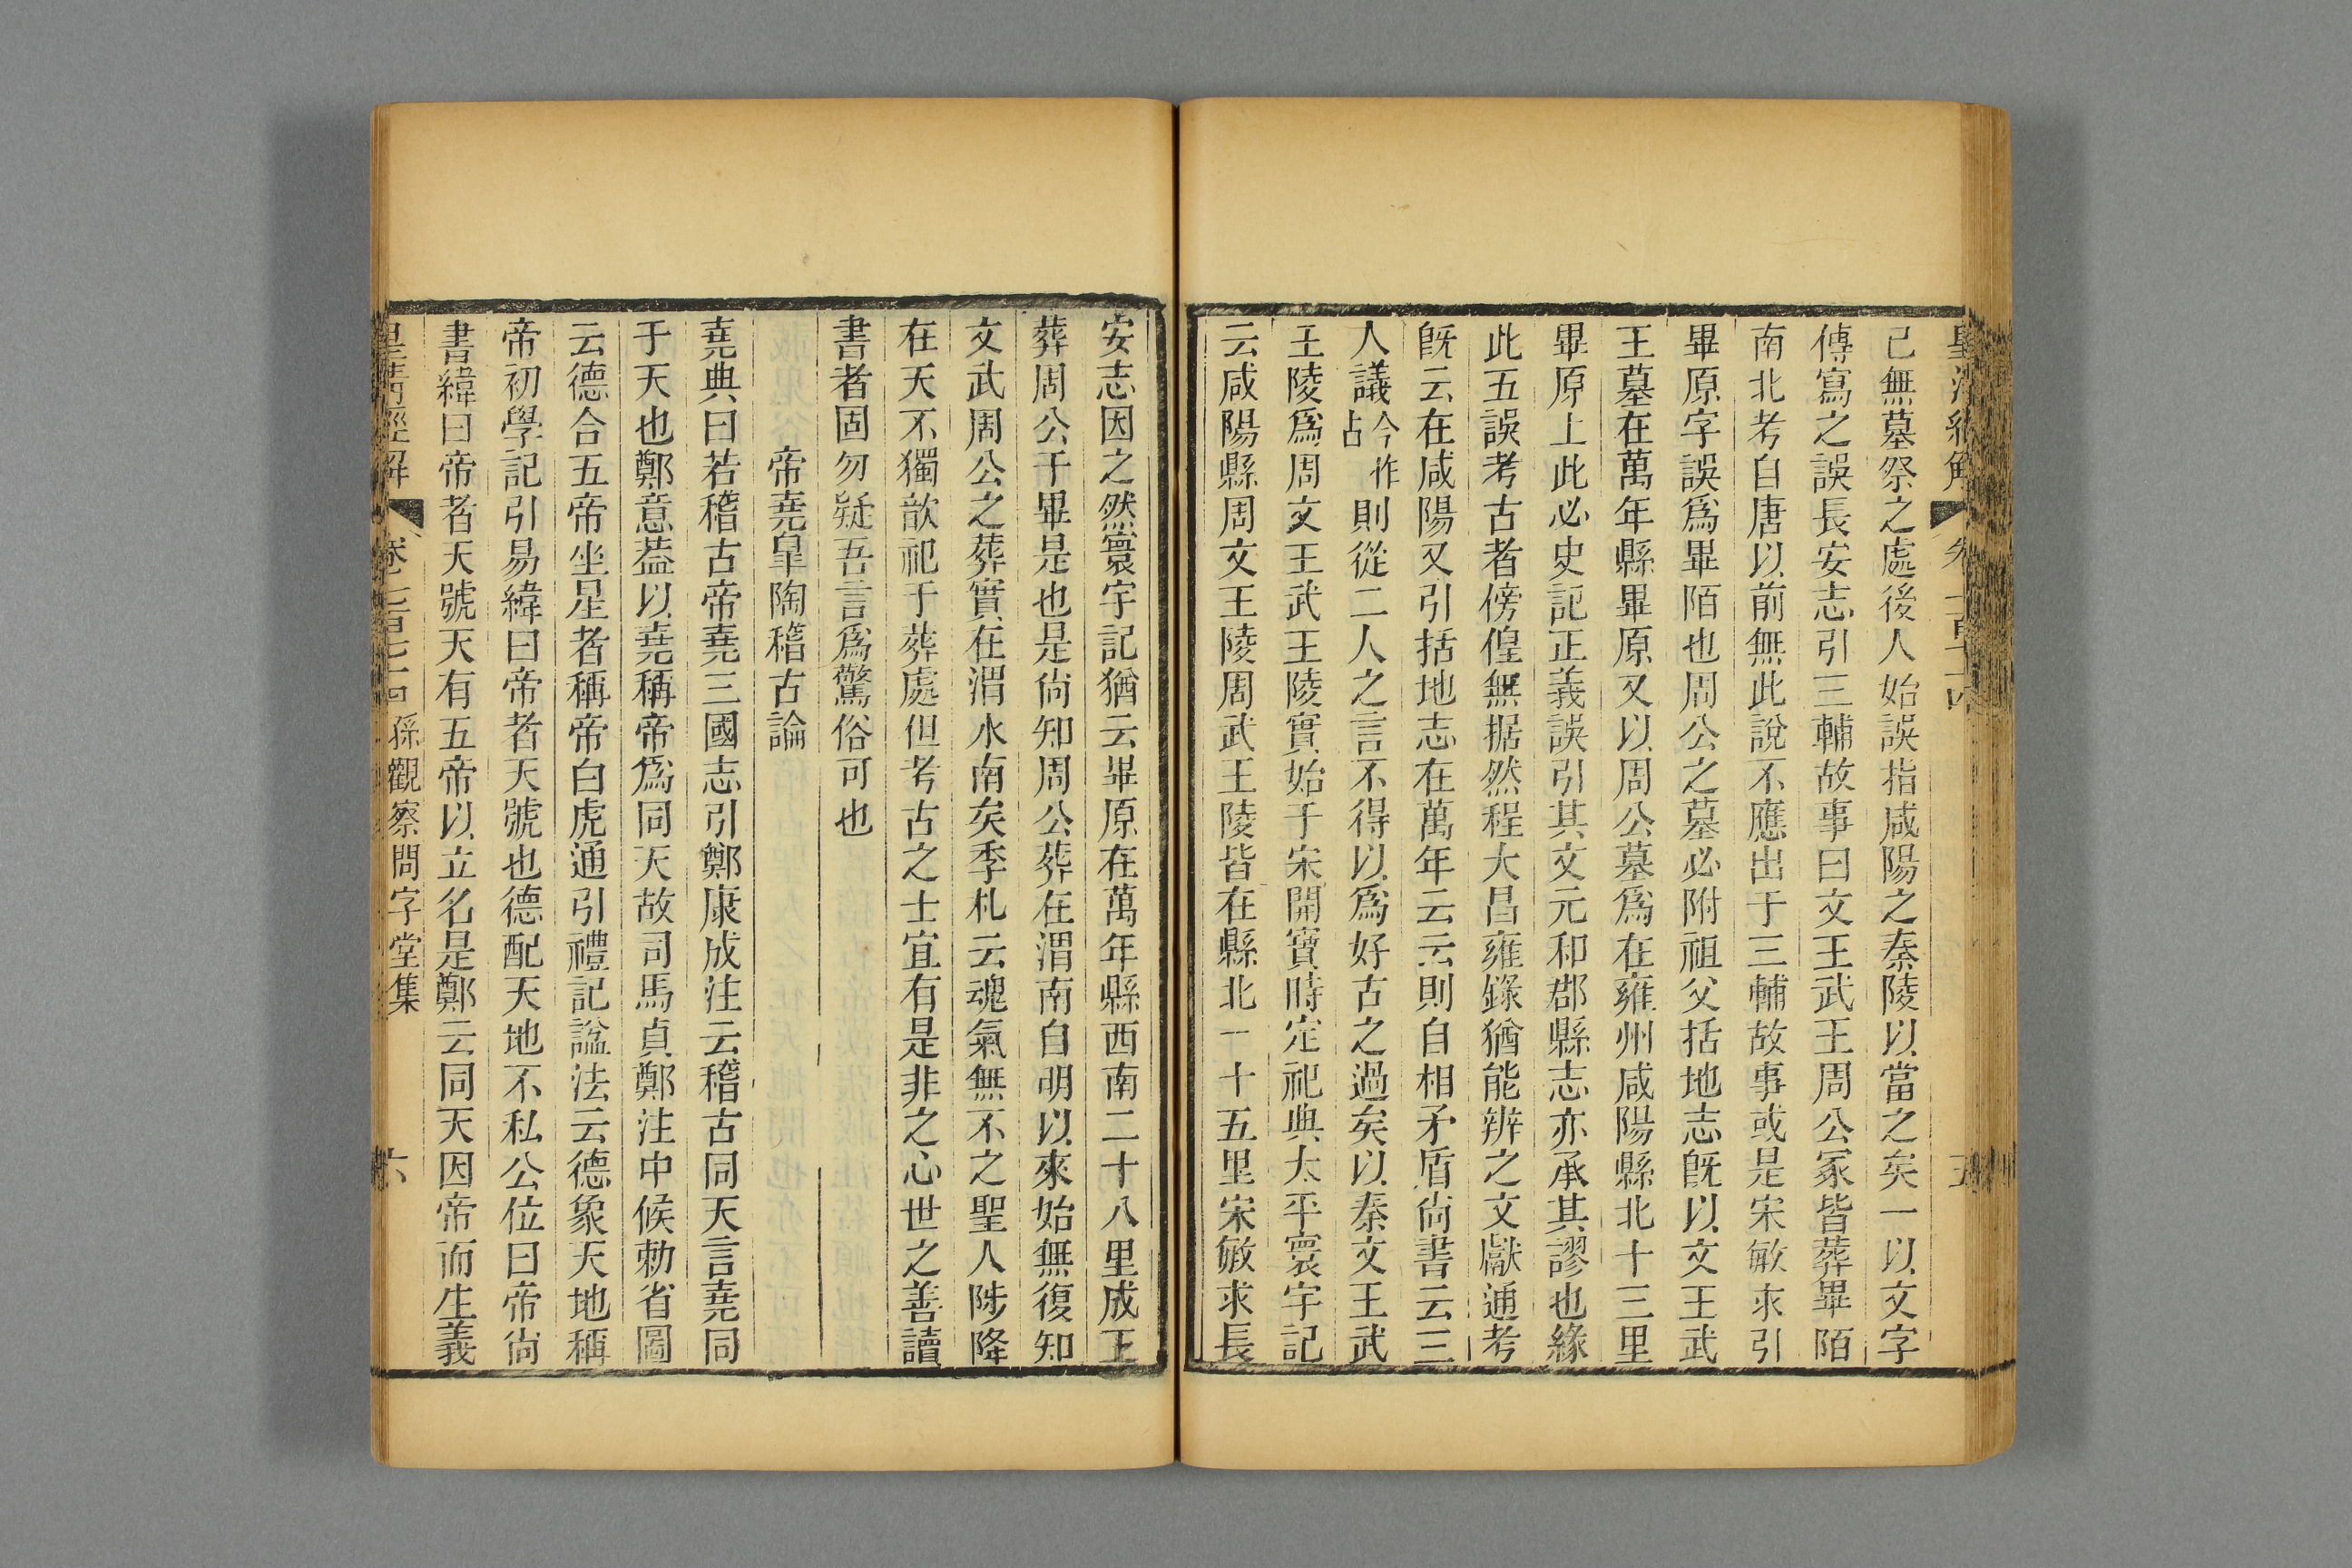 皇清經解 卷七百七十四 五
己無墓祭之處後人始誤指咸陽之秦陵以當之矣一以文字
傳寫之誤長安志引三輔故事曰文王武王周公冢皆葬畢陌
南北考自唐以前無此說不應出于三輔故事或是宋敏求引
畢原字誤爲畢陌也周公之墓必附祖父括地志旣以文王武
王墓在萬年縣畢原又以周公墓爲在雍州咸陽縣北十三里
畢原上此必史記正義誤引其文元和郡縣志亦承其謬也緣
此五誤考古者傍偟無据然程大昌雍錄猶能辨之文獻通考
旣云在咸陽又引括地志在萬年云云則自相矛盾尙書云三
人議今作占則從二人之言不得以爲好古之過矣以秦文王武
王陵爲周文王武王陵實始于宋開寶時定祀典太平寰宇記
云咸陽縣周文王陵周武王陵皆在縣北一十五里宋敏求長
安志因之然寰宇記猶云畢原在萬年縣西南二十八里成王
葬周公于畢是也是尙知周公葬在渭南自明以來始無復知
文武周公之葬實在渭水南矣季札云魂氣無不之聖人陟降
在天不獨歆祀于葬處但考古之士宜有是非之心世之善讀
書者固勿疑吾言爲驚俗可也
帝堯皐陶稽古論
堯典曰若稽古帝堯三國志引鄭康成注云稽古同天言堯同
于天也鄭意葢以堯稱帝爲同天故司馬貞鄭注中候勑省圖
云德合五帝坐星者稱帝白虎通引禮記諡法云德象天地稱
帝初學記引易緯曰帝者天號也德配天地不私公位曰帝尙
書緯曰帝者天號天有五帝以立名是鄭云同天因帝而生義
皇清經解 卷七百七十四 孫觀察問字堂集 六